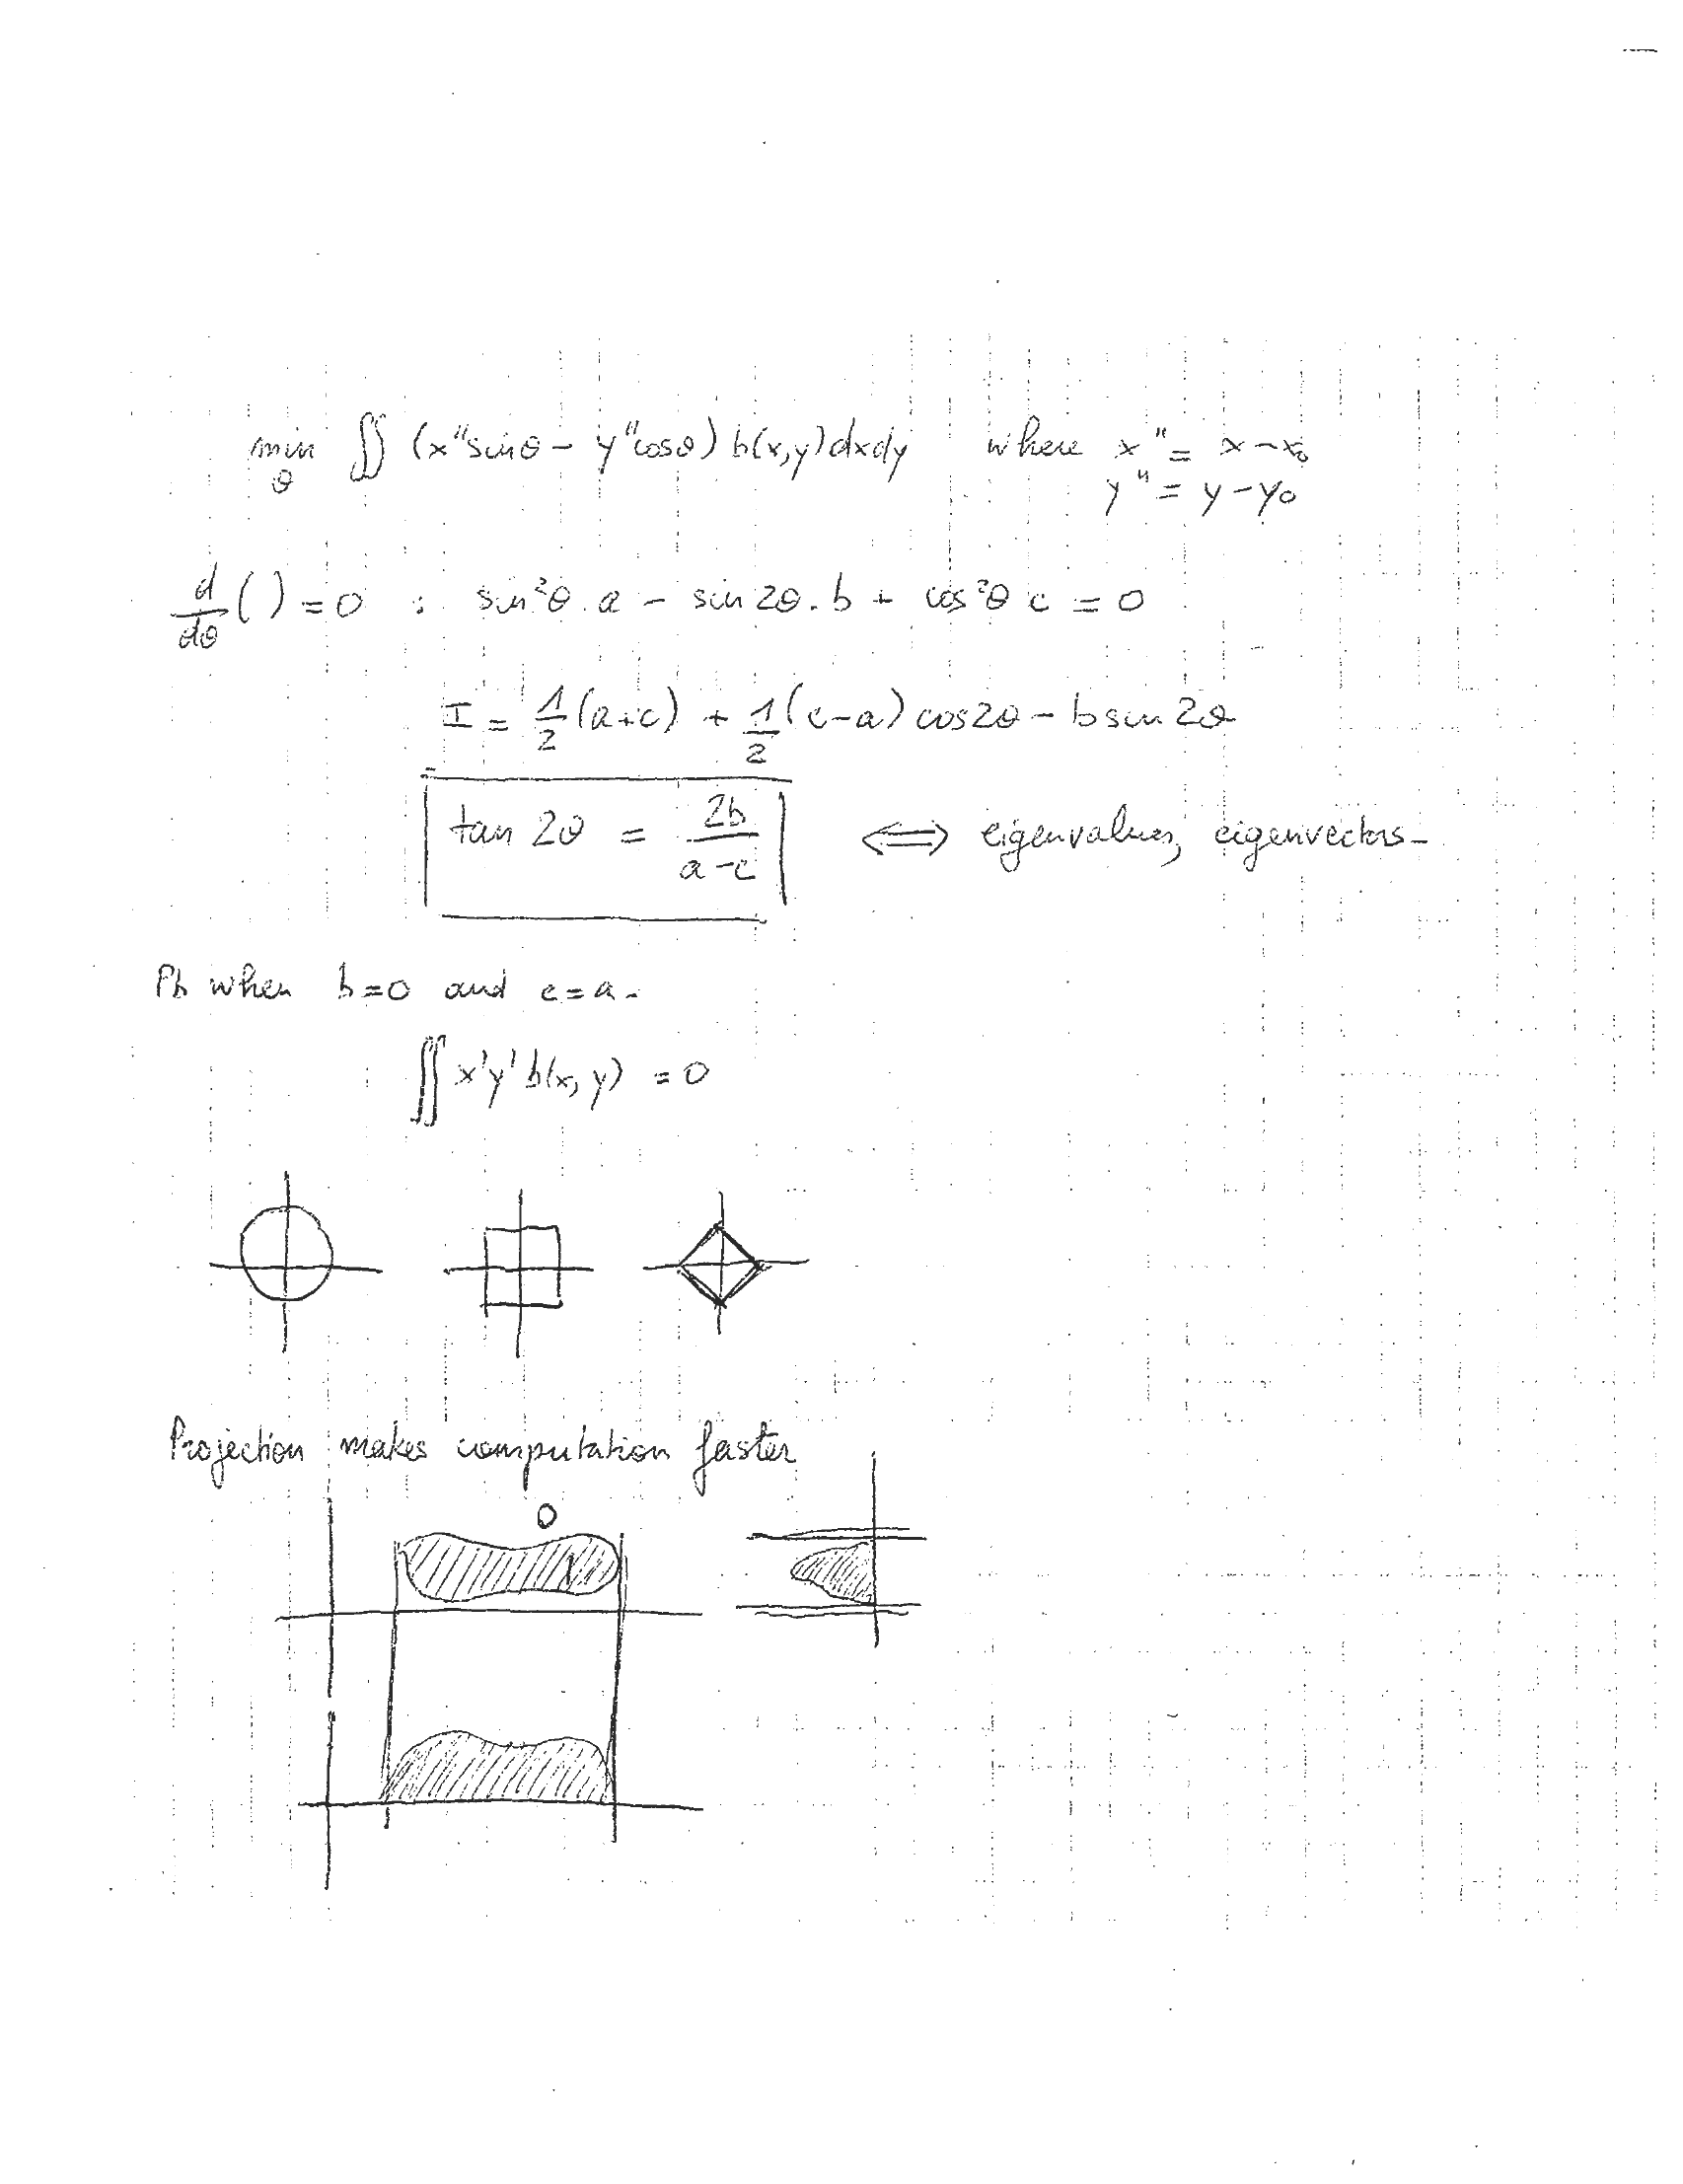 min ∬ (x"sinθ - y"cosθ) b(x,y)dxdy where x" = x-x₀
θ
y" = y-y₀
d/dθ ( ) = 0 : sin²θ.a - sin2θ.b + cos²θ c = 0
I = 1/2 (a+c) + 1/2 (c-a) cos2θ - b sin2θ
tan 2θ = 2b/(a-c) ⟺ eigenvalues, eigenvectors-
Pb when b=0 and c=a-
∬ x'y' b(x, y) = 0
Projection makes computation faster